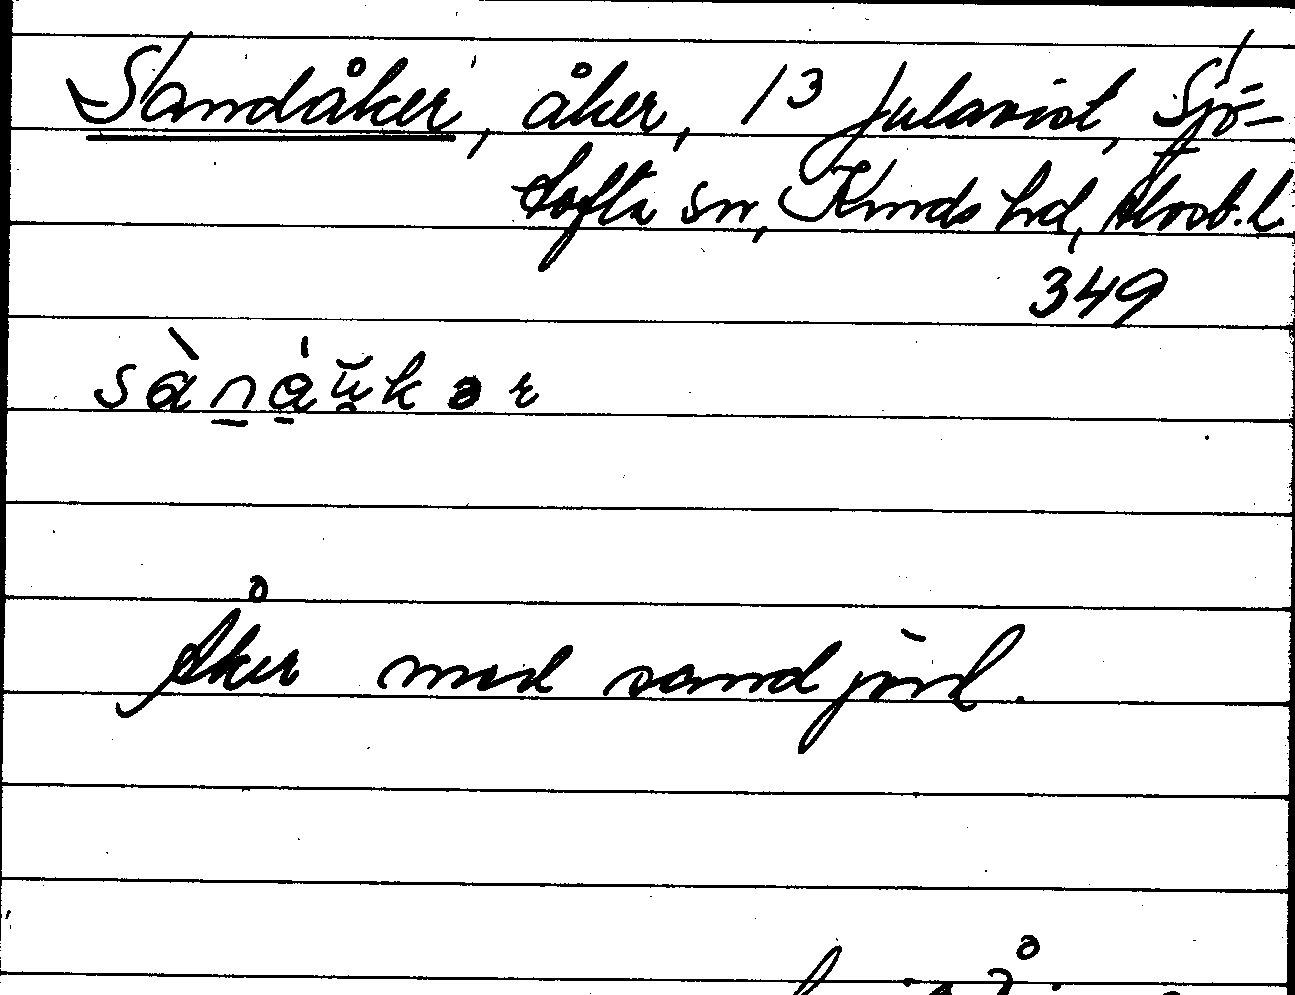 Sandåker, åker, 13 Julavist, Sjö-
tofta sn, Kinds hd, Älvsb. l.
349
sàn̠á̠u̯kər
Åker med sandjord.